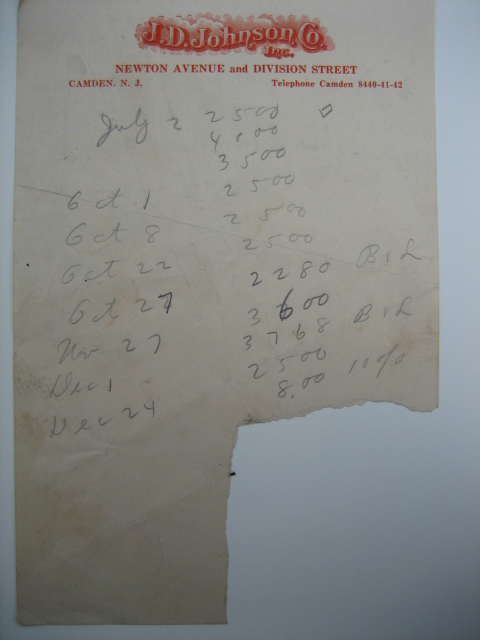 J.D. Johnson Co.
Inc.
NEWTON AVENUE and DIVISION STREET
CAMDEN, N. J. Telephone Camden 8440-41-42
July 2 2500
4000
3500
Oct 1 2500
Oct 8 2500
Oct 22 2500
Oct 27 2280 B&L
Nov 27 3600
Dec 1 3768 B&L
Dec 24 2500
8.00 10%